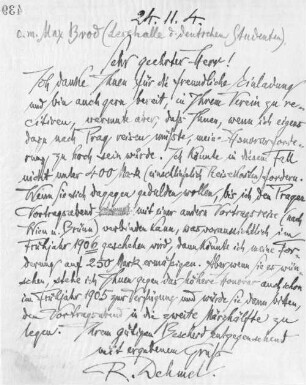 439
24. 11. 4.
a. m. Max Brod (Lesehalle d. deutschen Studenten).
Sehr geehrter Herr!
Ich danke Ihnen für die freundliche Einladung
und bin auch gern bereit, in Ihrem Verein zu re-
citiren, vermute aber, daß Ihnen, wenn ich eigens
dazu nach Prag reisen müßte, meine Honorarforde-
rung zu hoch sein würde. Ich könnte in diesem Fall
nicht unter 400 Mark (einschließlich Reisekosten) fordern.
Wenn Sie sich dagegen gedulden wollen, bis ich den Prager
Vortragsabend mit einer andern Vortragsreise (nach
Wien u. Brünn) verbinden kann, was voraussichtlich im
Frühjahr 1906 geschehen wird, dann könnte ich meine For-
derung auf 250 Mark ermäßigen. Aber wenn Sie es wün-
schen, stehe ich Ihnen gegen das höhere Honorar auch schon
im Frühjahr 1905 zur Verfügung und würde Sie dann bitten,
den Vortragsabend in die zweite Märzhälfte zu
legen. Ihrem gütigen Bescheid entgegensehend
mit ergebenem Gruß!
R. Dehmel.